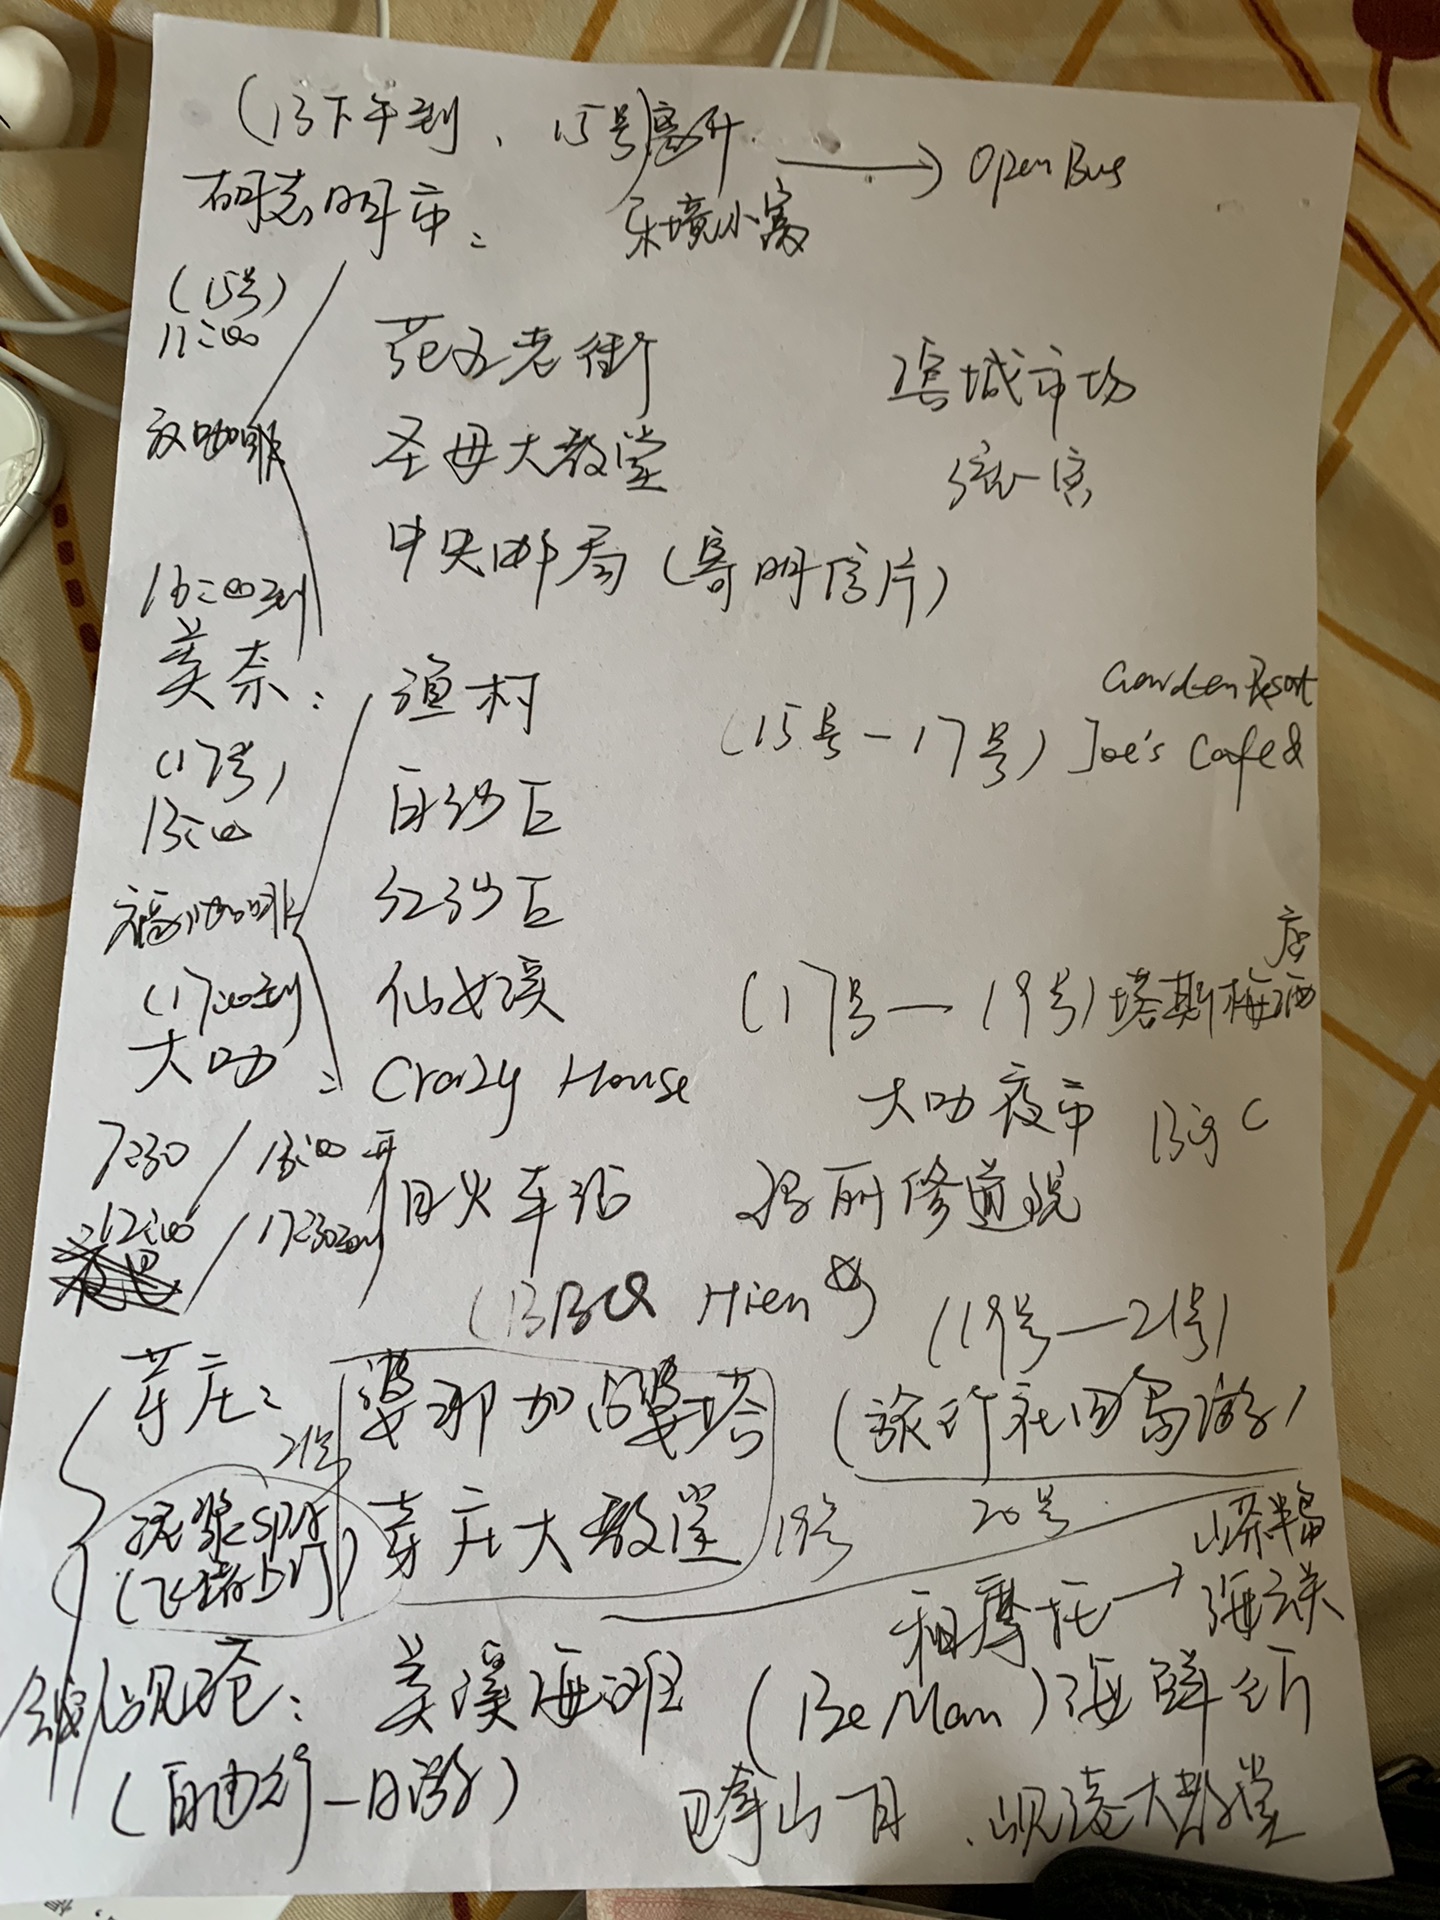 (13下午到、15号离开 → Open Bus
胡志明市: 乐境小寓
(15号)
11:00
范五老街 滨城市场
圣母大教堂 统一宫
咖啡
中央邮局(寄明信片)
16:00到
美奈: 渔村
(15号-17号) Joe's Cafe &
Garden Resort
(17号)
13:00
白沙丘
红沙丘
咖啡
仙女溪
(17:00到
大叻: Crazy House
(17号—19号)塔斯梅酒
店
大叻夜市 Big C
7:30 / 13:00开
12:00 / 17:30到
旧火车站 玛丽修道院
(BBQ Hien) (19号—21号)
芽庄: 婆那加占婆塔 (旅行社四岛游)
20号
21号
泥浆SPA
芽庄大教堂 19号
租摩托→
山茶半岛
海云关
岘港: 美溪海滩 (Be Man)海鲜
(自由行一日游) 岘港大教堂